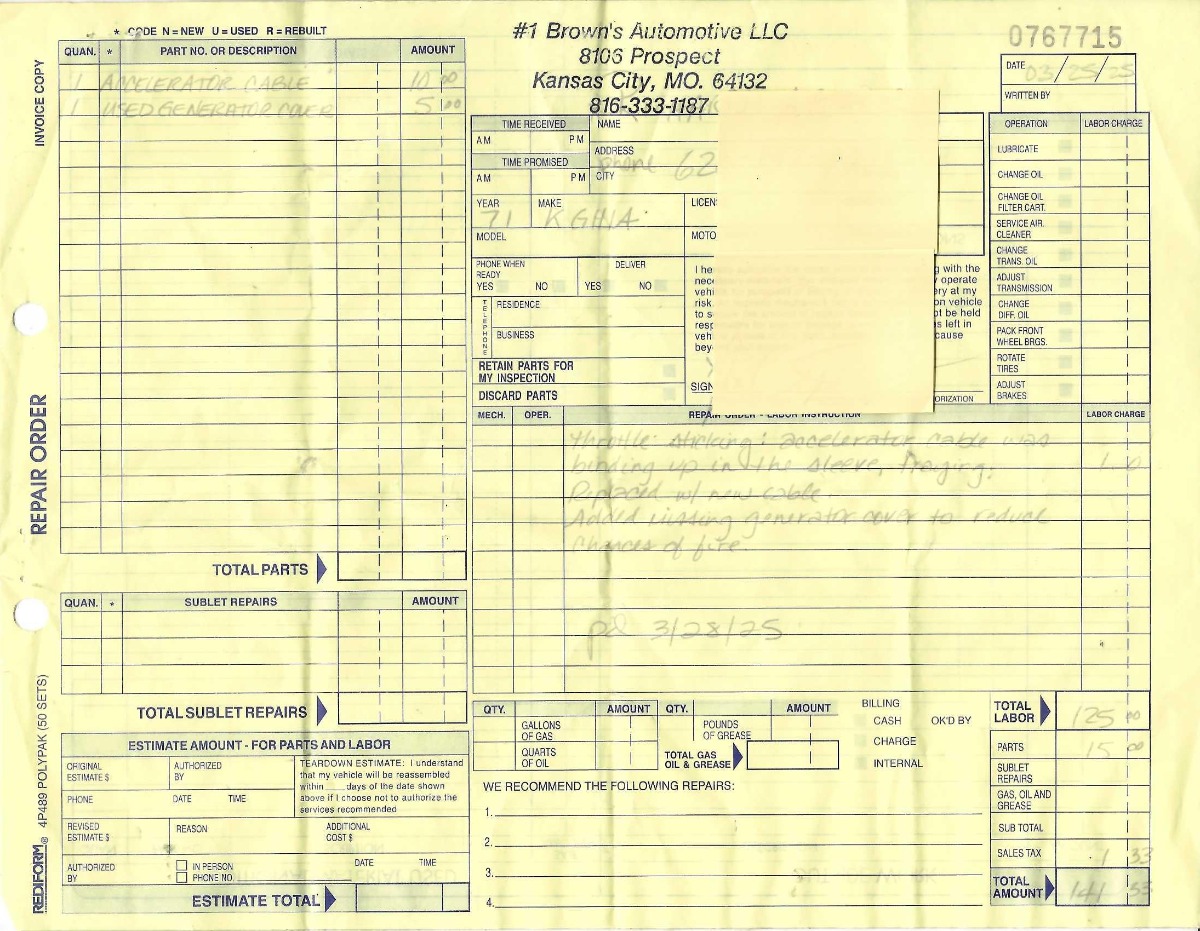 * CODE N = NEW U = USED R = REBUILT
QUAN. * PART NO. OR DESCRIPTION AMOUNT
1 ACCELERATOR CABLE 10 00
1 USED GENERATOR COVER 5 00
TOTAL PARTS
QUAN. * SUBLET REPAIRS AMOUNT
TOTAL SUBLET REPAIRS
ESTIMATE AMOUNT - FOR PARTS AND LABOR
ORIGINAL ESTIMATE $
AUTHORIZED BY
TEARDOWN ESTIMATE: I understand
that my vehicle will be reassembled
within ___ days of the date shown
above if I choose not to authorize the
services recommended
PHONE DATE TIME
REVISED ESTIMATE $
REASON
ADDITIONAL COST $
AUTHORIZED BY
IN PERSON
PHONE NO.
DATE TIME
ESTIMATE TOTAL
INVOICE COPY
REPAIR ORDER
REDIFORM® 4P489 POLYPAK (50 SETS)
#1 Brown's Automotive LLC
8106 Prospect
Kansas City, MO. 64132
816-333-1187
0767715
DATE 03/25/25
WRITTEN BY
TIME RECEIVED
AM PM
TIME PROMISED
AM PM
NAME
ADDRESS
phone 62
CITY
YEAR MAKE LICEN
71 K GHIA
MODEL MOTO
PHONE WHEN READY
YES NO
DELIVER
YES NO
TELEPHONE
RESIDENCE
BUSINESS
RETAIN PARTS FOR
MY INSPECTION
DISCARD PARTS
I he g with the
nece y operate
vehi ery at my
risk. on vehicle
to s ot be held
resp s left in
veh cause
bey
SIGN ORIZATION
OPERATION LABOR CHARGE
LUBRICATE
CHANGE OIL
CHANGE OIL FILTER CART.
SERVICE AIR. CLEANER
CHANGE TRANS. OIL
ADJUST TRANSMISSION
CHANGE DIFF. OIL
PACK FRONT WHEEL BRGS.
ROTATE TIRES
ADJUST BRAKES
MECH. OPER. REPAIR ORDER - LABOR INSTRUCTION LABOR CHARGE
throttle sticking: accelerator cable was
binding up in the sleeve, fraying. 1.0
Replaced w/ new cable.
Added missing generator cover to reduce
chances of fire
pd 3/28/25
QTY. AMOUNT QTY. AMOUNT
GALLONS OF GAS
POUNDS OF GREASE
QUARTS OF OIL
TOTAL GAS OIL & GREASE
BILLING
CASH OK'D BY
CHARGE
INTERNAL
WE RECOMMEND THE FOLLOWING REPAIRS:
1.
2.
3.
4.
TOTAL LABOR 125 00
PARTS 15 00
SUBLET REPAIRS
GAS, OIL AND GREASE
SUB TOTAL
SALES TAX 1 33
TOTAL AMOUNT 141 33